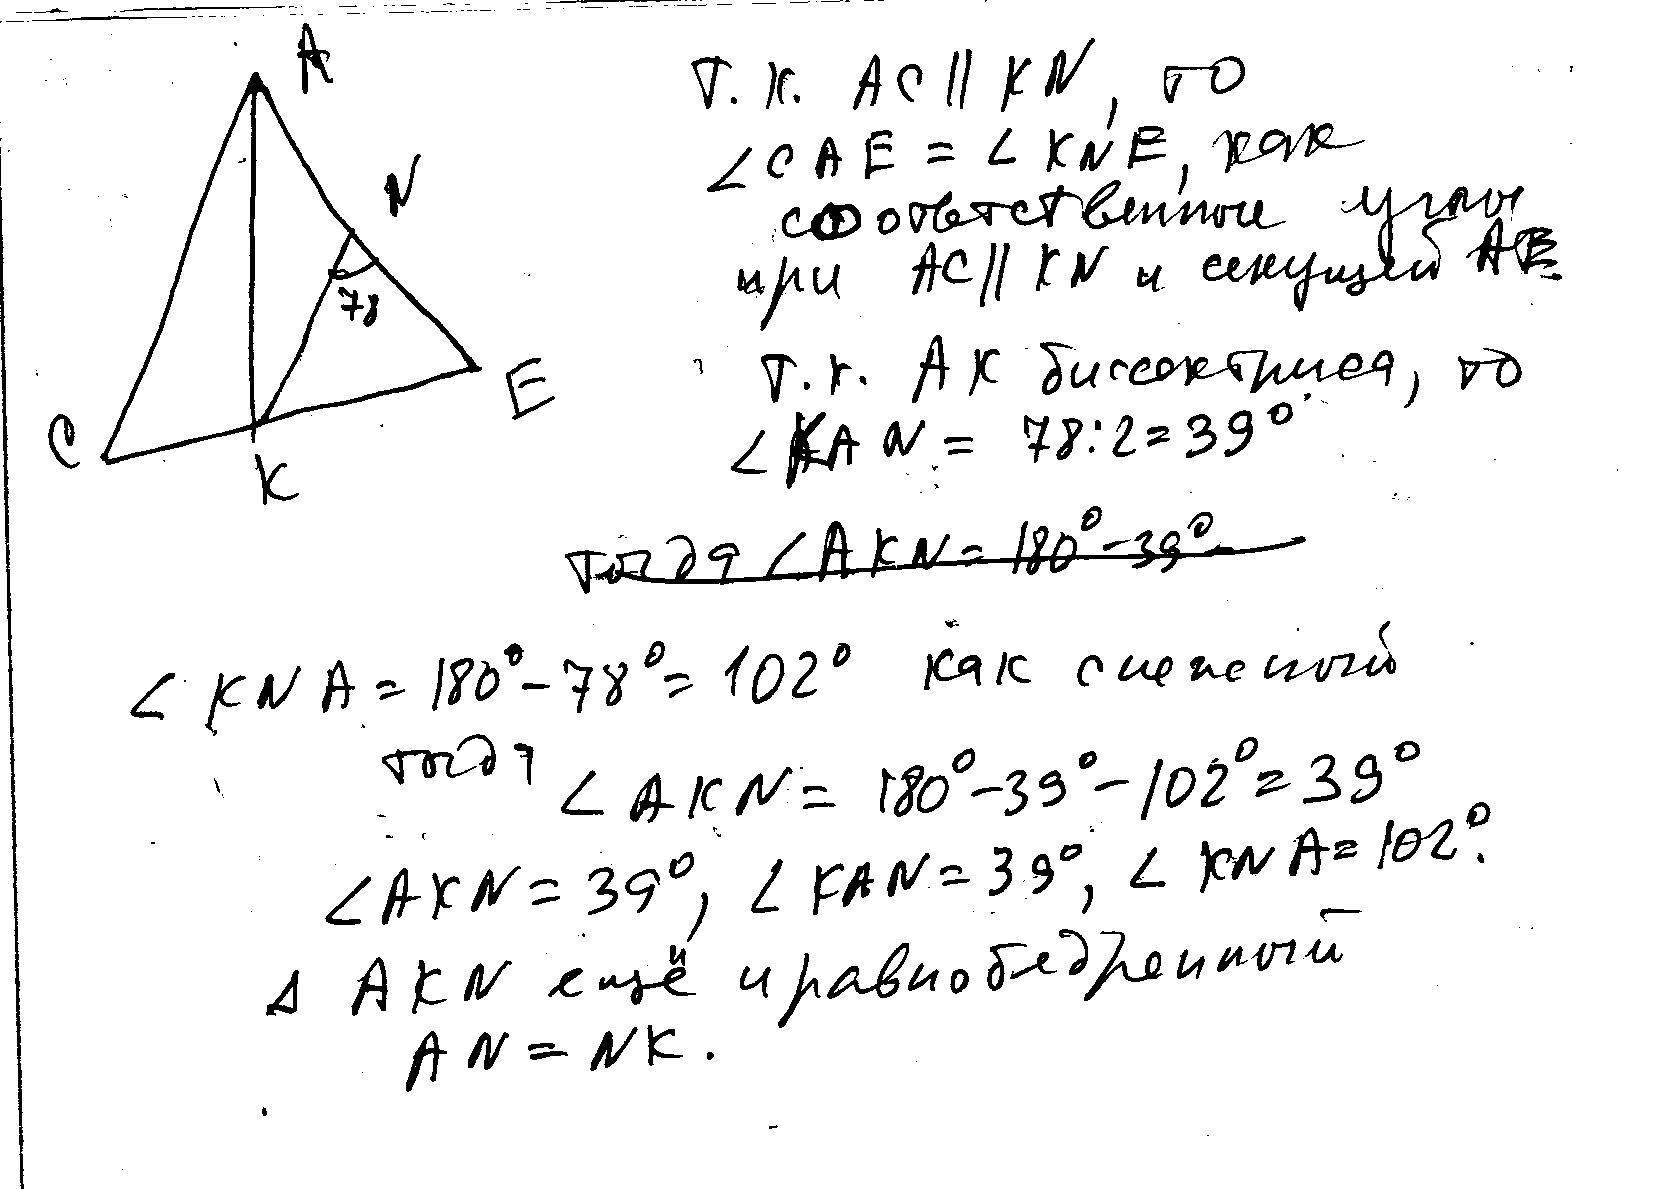 A
N
78
C
K
E
т.к. AC || KN, то
∠CAE = ∠KNE, как
соответственные углы
при AC || KN и секущей AE
т.к. AK биссектриса, то
∠KAN = 78:2 = 39°.
тогда ∠AKN = 180° - 39°
∠KNA = 180° - 78° = 102° как смежный
тогда
∠AKN = 180° - 39° - 102° = 39°
∠AKN = 39°, ∠KAN = 39°, ∠KNA = 102°.
Δ AKN ещё и равнобедренный
AN = NK.